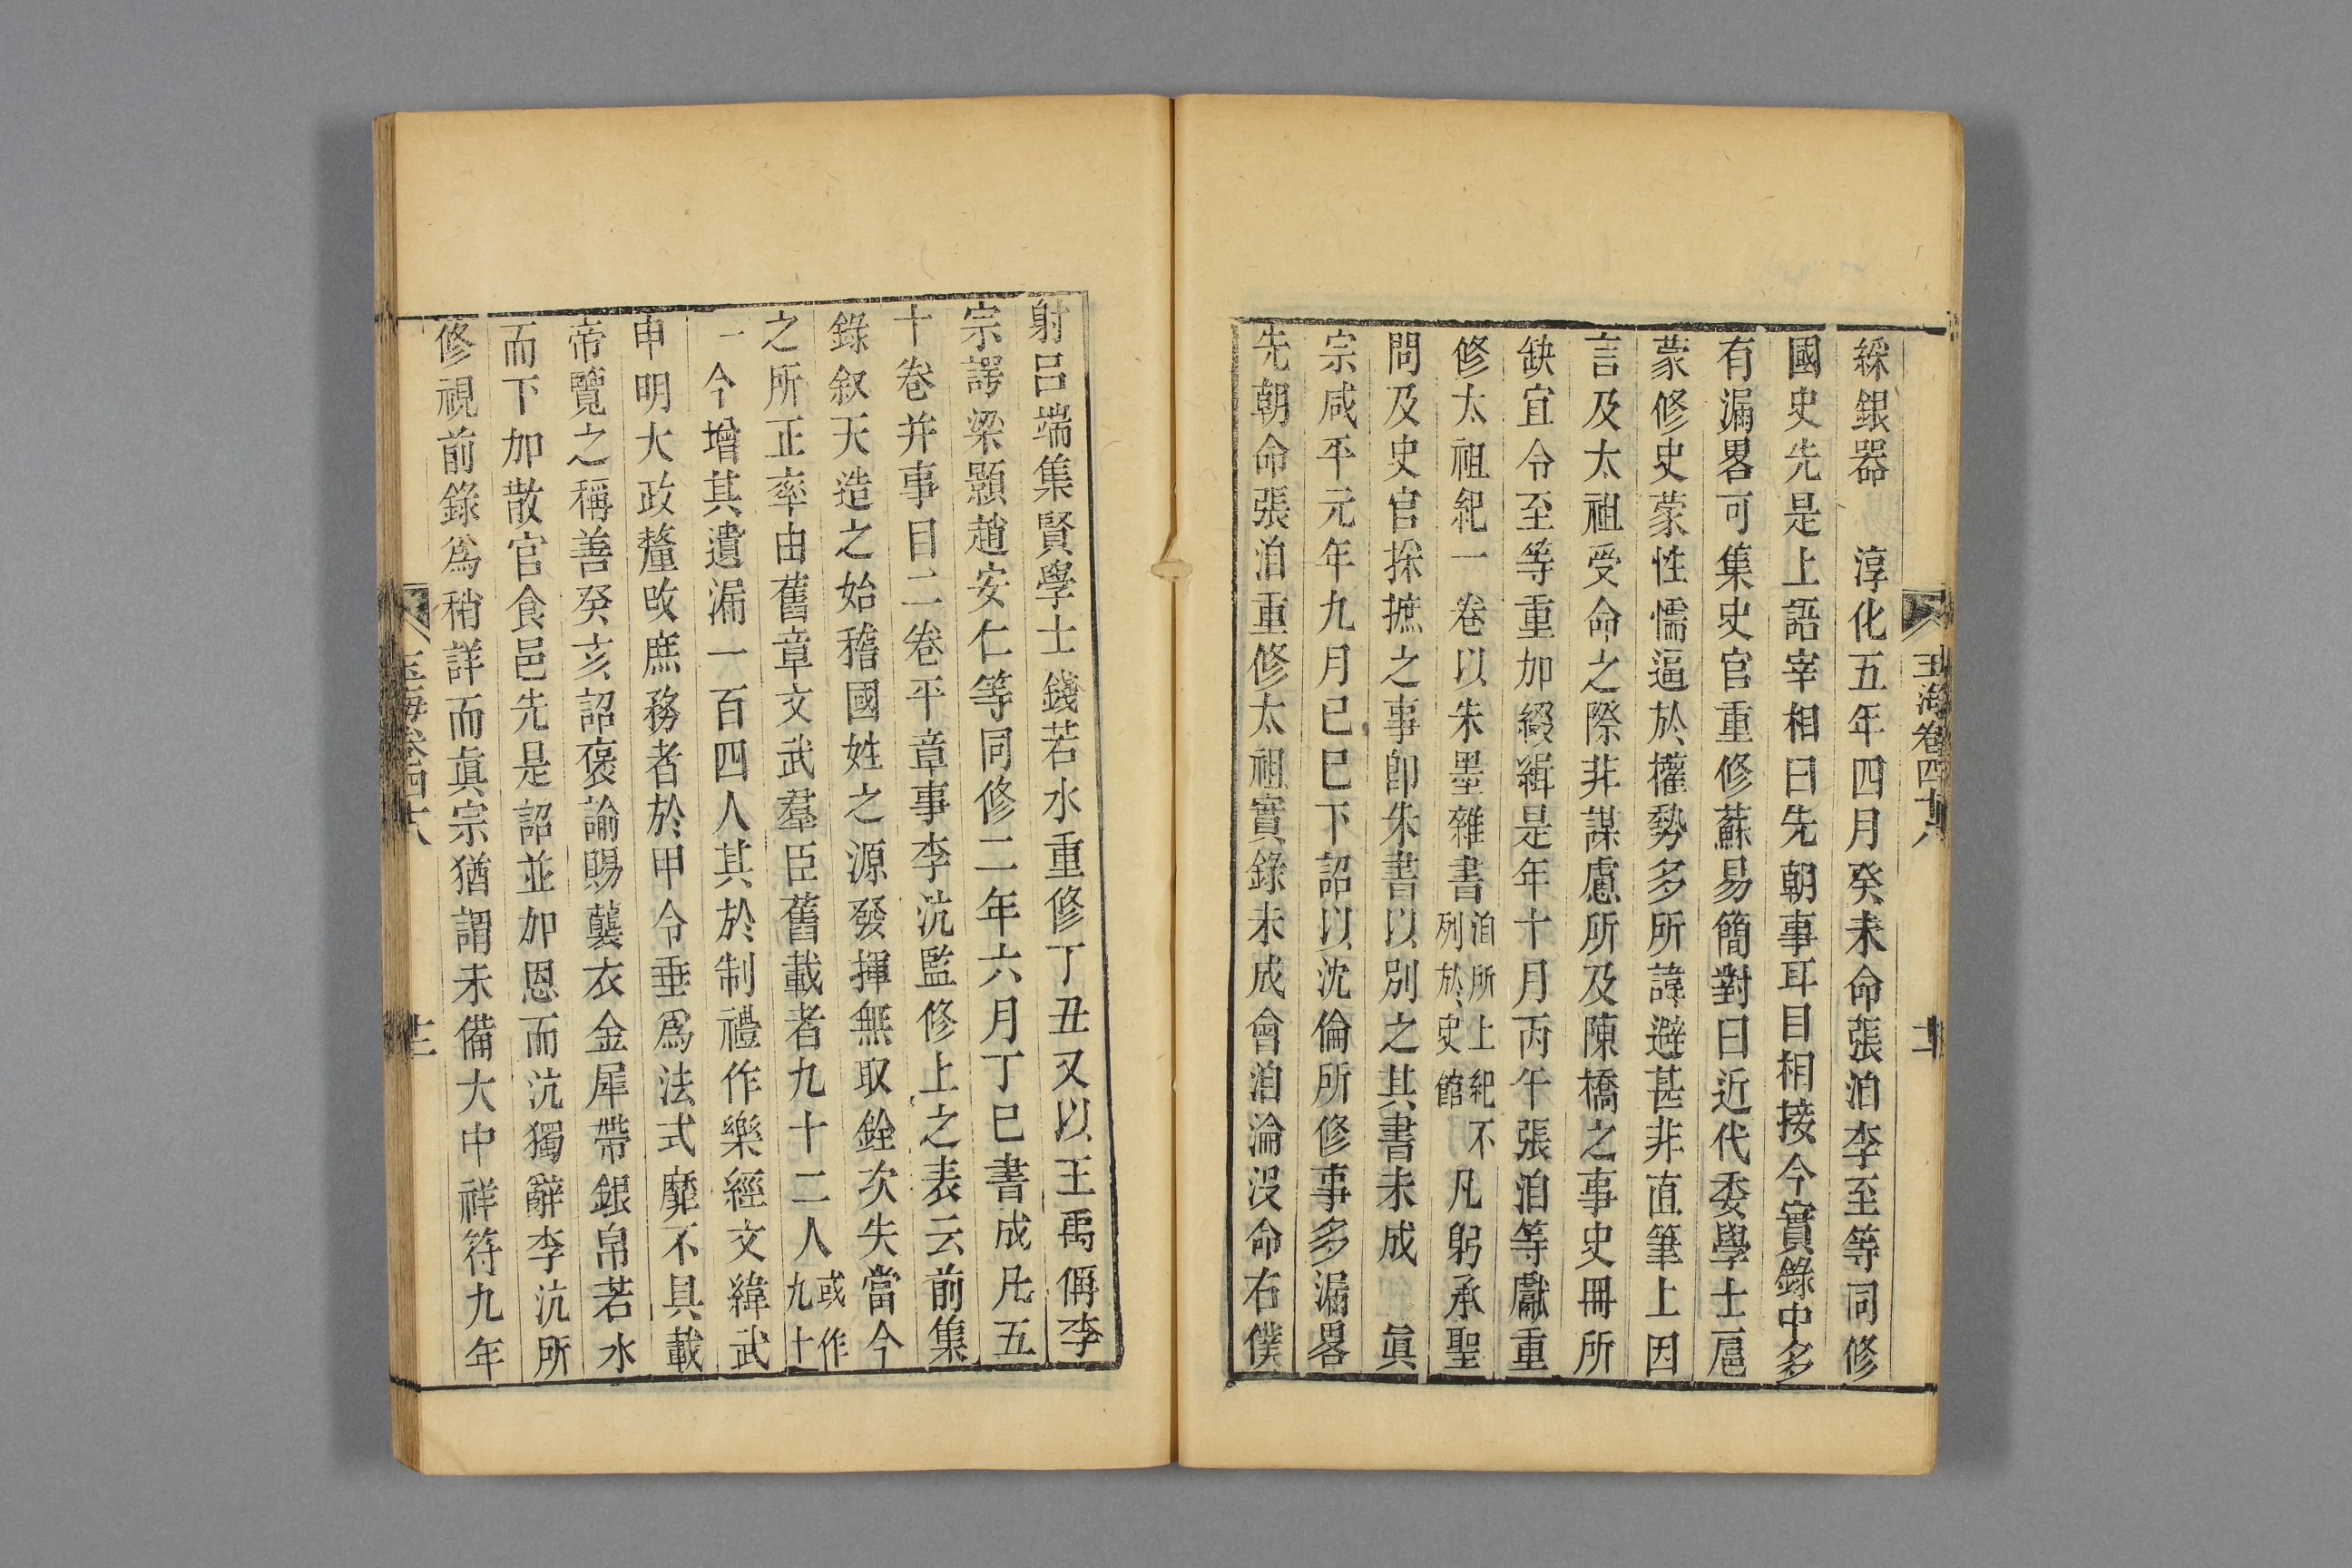 玉海卷四十八
十二
綵銀器　淳化五年四月癸未命張洎李至等同修
國史先是上語宰相曰先朝事耳目相接今實錄中多
有漏畧可集史官重修蘇易簡對曰近代委學士扈
蒙修史蒙性懦逼於權勢多所諱避甚非直筆上因
言及太祖受命之際非謀慮所及陳橋之事史冊所
缺宜令至等重加綴緝是年十月丙午張洎等獻重
修太祖紀一卷以朱墨雜書洎所上紀不列於史館凡躬承聖
問及史官採摭之事即朱書以別之其書未成　眞
宗咸平元年九月己巳下詔以沈倫所修事多漏畧
先朝命張洎重修太祖實錄未成會洎淪沒命右僕
射呂端集賢學士錢若水重修丁丑又以王禹偁李
宗諤梁顥趙安仁等同修二年六月丁巳書成凡五
十卷并事目二卷平章事李沆監修上之表云前集
錄叙天造之始稽國姓之源發揮無取銓次失當今
之所正率由舊章文武羣臣舊載者九十二人或作九十
一今增其遺漏一百四人其於制禮作樂經文緯武
申明大政釐攺庶務者於甲令垂爲法式靡不具載
帝覽之稱善癸亥詔褒諭賜襲衣金犀帶銀帛若水
而下加散官食邑先是詔並加恩而沆獨辭李沆所
修視前錄爲稍詳而眞宗猶謂未備大中祥符九年
玉海卷四十八